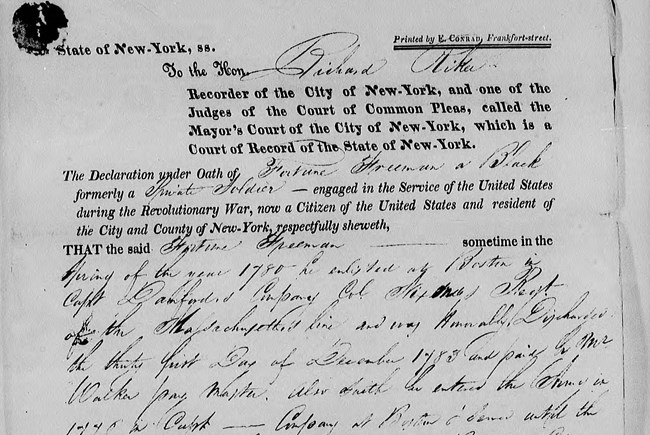 Printed by E. CONRAD, Frankfort-street.
State of New-York, ss.
To the Hon. Richard Riker
Recorder of the City of New-York, and one of the
Judges of the Court of Common Pleas, called the
Mayor's Court of the City of New-York, which is a
Court of Record of the State of New-York.
The Declaration under Oath of Fortune Freeman a Black
formerly a Private Soldier — engaged in the Service of the United States
during the Revolutionary War, now a Citizen of the United States and resident of
the City and County of New-York, respectfully sheweth,
THAT the said Fortune Freeman — sometime in the
Spring of the year 1780 he enlisted at Boston in
Capt Company Col Regt
the Massachusetts line and was Honorably Discharged
the thirty first Day of December 1783 and paid by
Walker pay master. Also he entered the in
in Capt — Company at Boston & until the